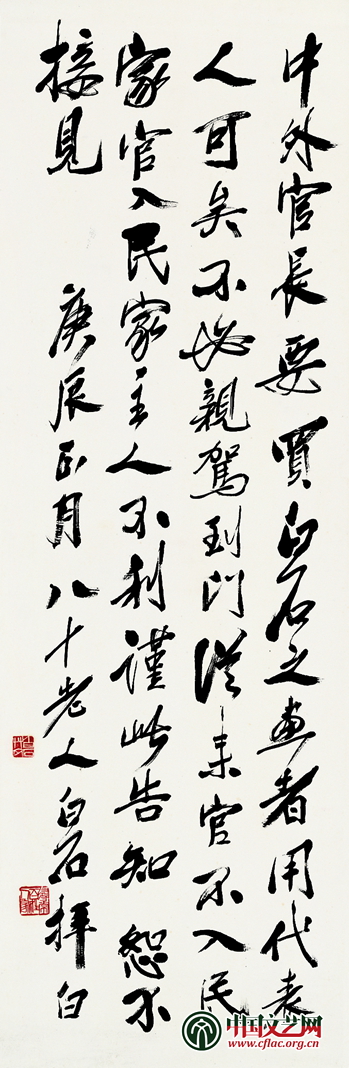 中外官長要買白石之畫者用代表
人可矣不必親駕到門從来官不入民
家官入民家主人不利謹此告知恕不
接見
庚辰正月八十老人白石拜白
中国文艺网
www.cflac.org.cn